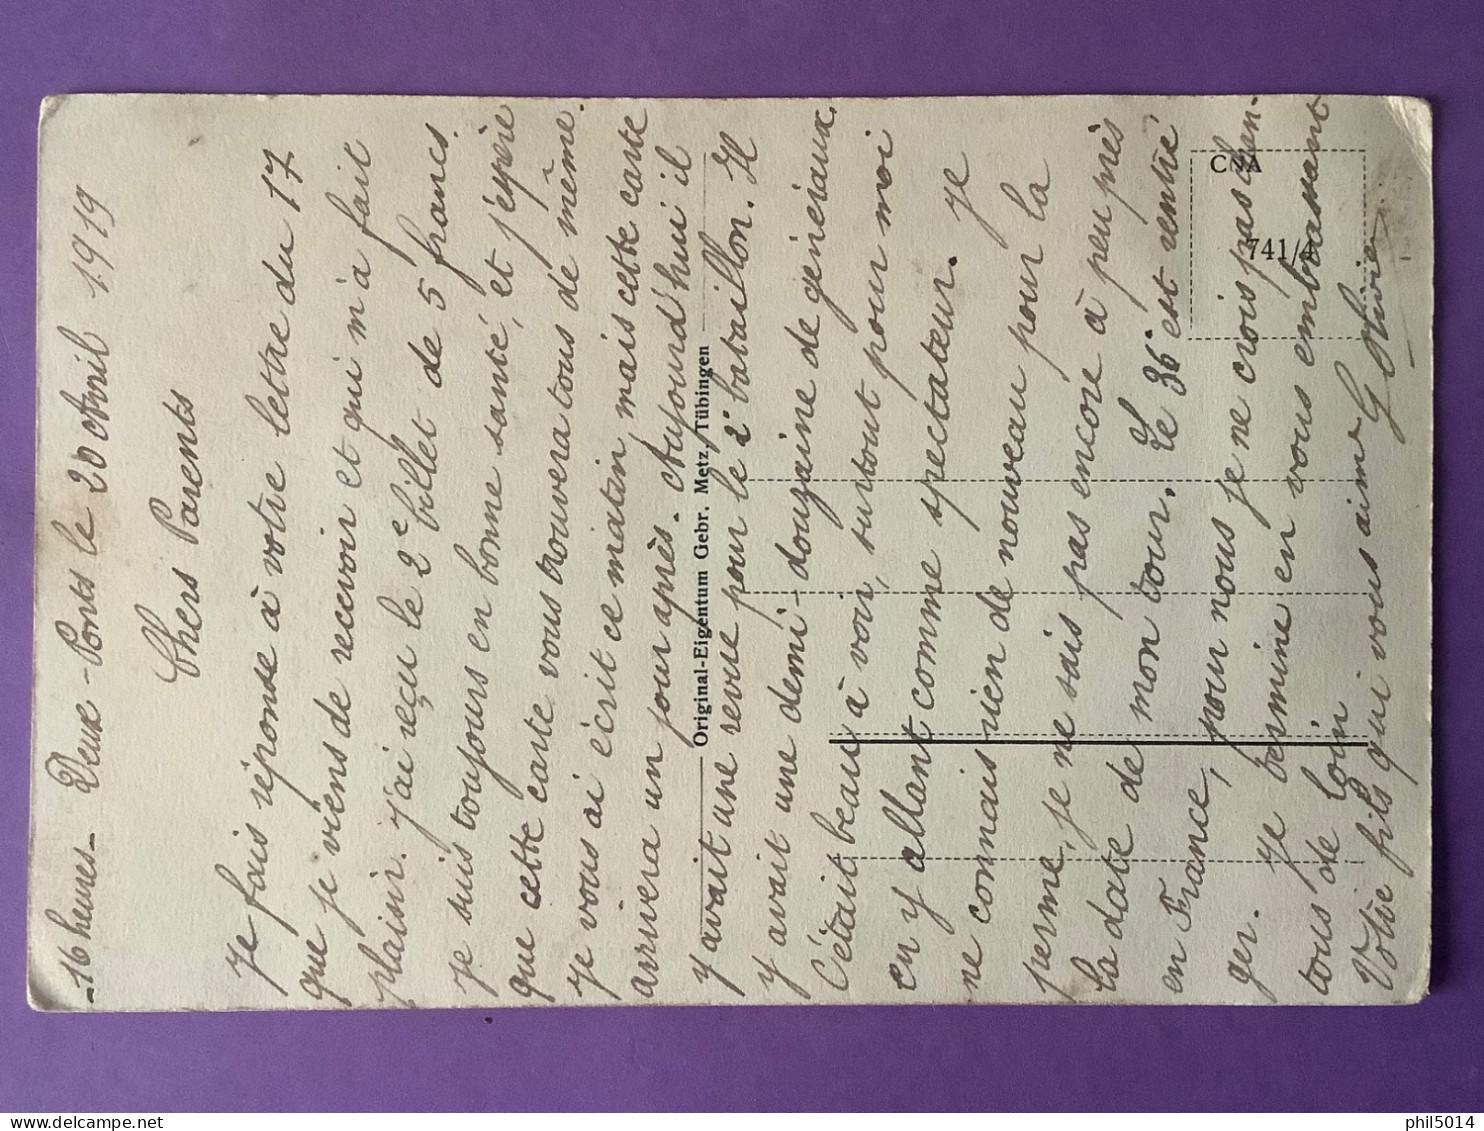 -16 heures- Deux-Ponts le 20 Avril 1919
Chers Parents
Je fais réponse à votre lettre du 17
que je viens de recevoir et qui m'a fait
plaisir. J'ai reçu le 2e billet de 5 francs.
Je suis toujours en bonne santé, et j'espère
que cette carte vous trouvera tous de même.
Je vous ai écrit ce matin, mais cette carte
arrivera un jour après. Aujourd'hui il
y avait une revue pour le 2e bataillon. Il
y avait une demi-douzaine de généraux.
C'était beau à voir, surtout pour moi
en y allant comme spectateur. Je
ne connais rien de nouveau pour la
perme, je ne sais pas encore à peu près
la date de mon tour. Le 36e est rentré
en France, pour nous je ne crois pas chan-
ger. Je termine en vous embrassant
tous de loin
Votre fils qui vous aime G Olivier
Original-Eigentum Gebr. Metz, Tübingen
CNA
741/4
phil5014